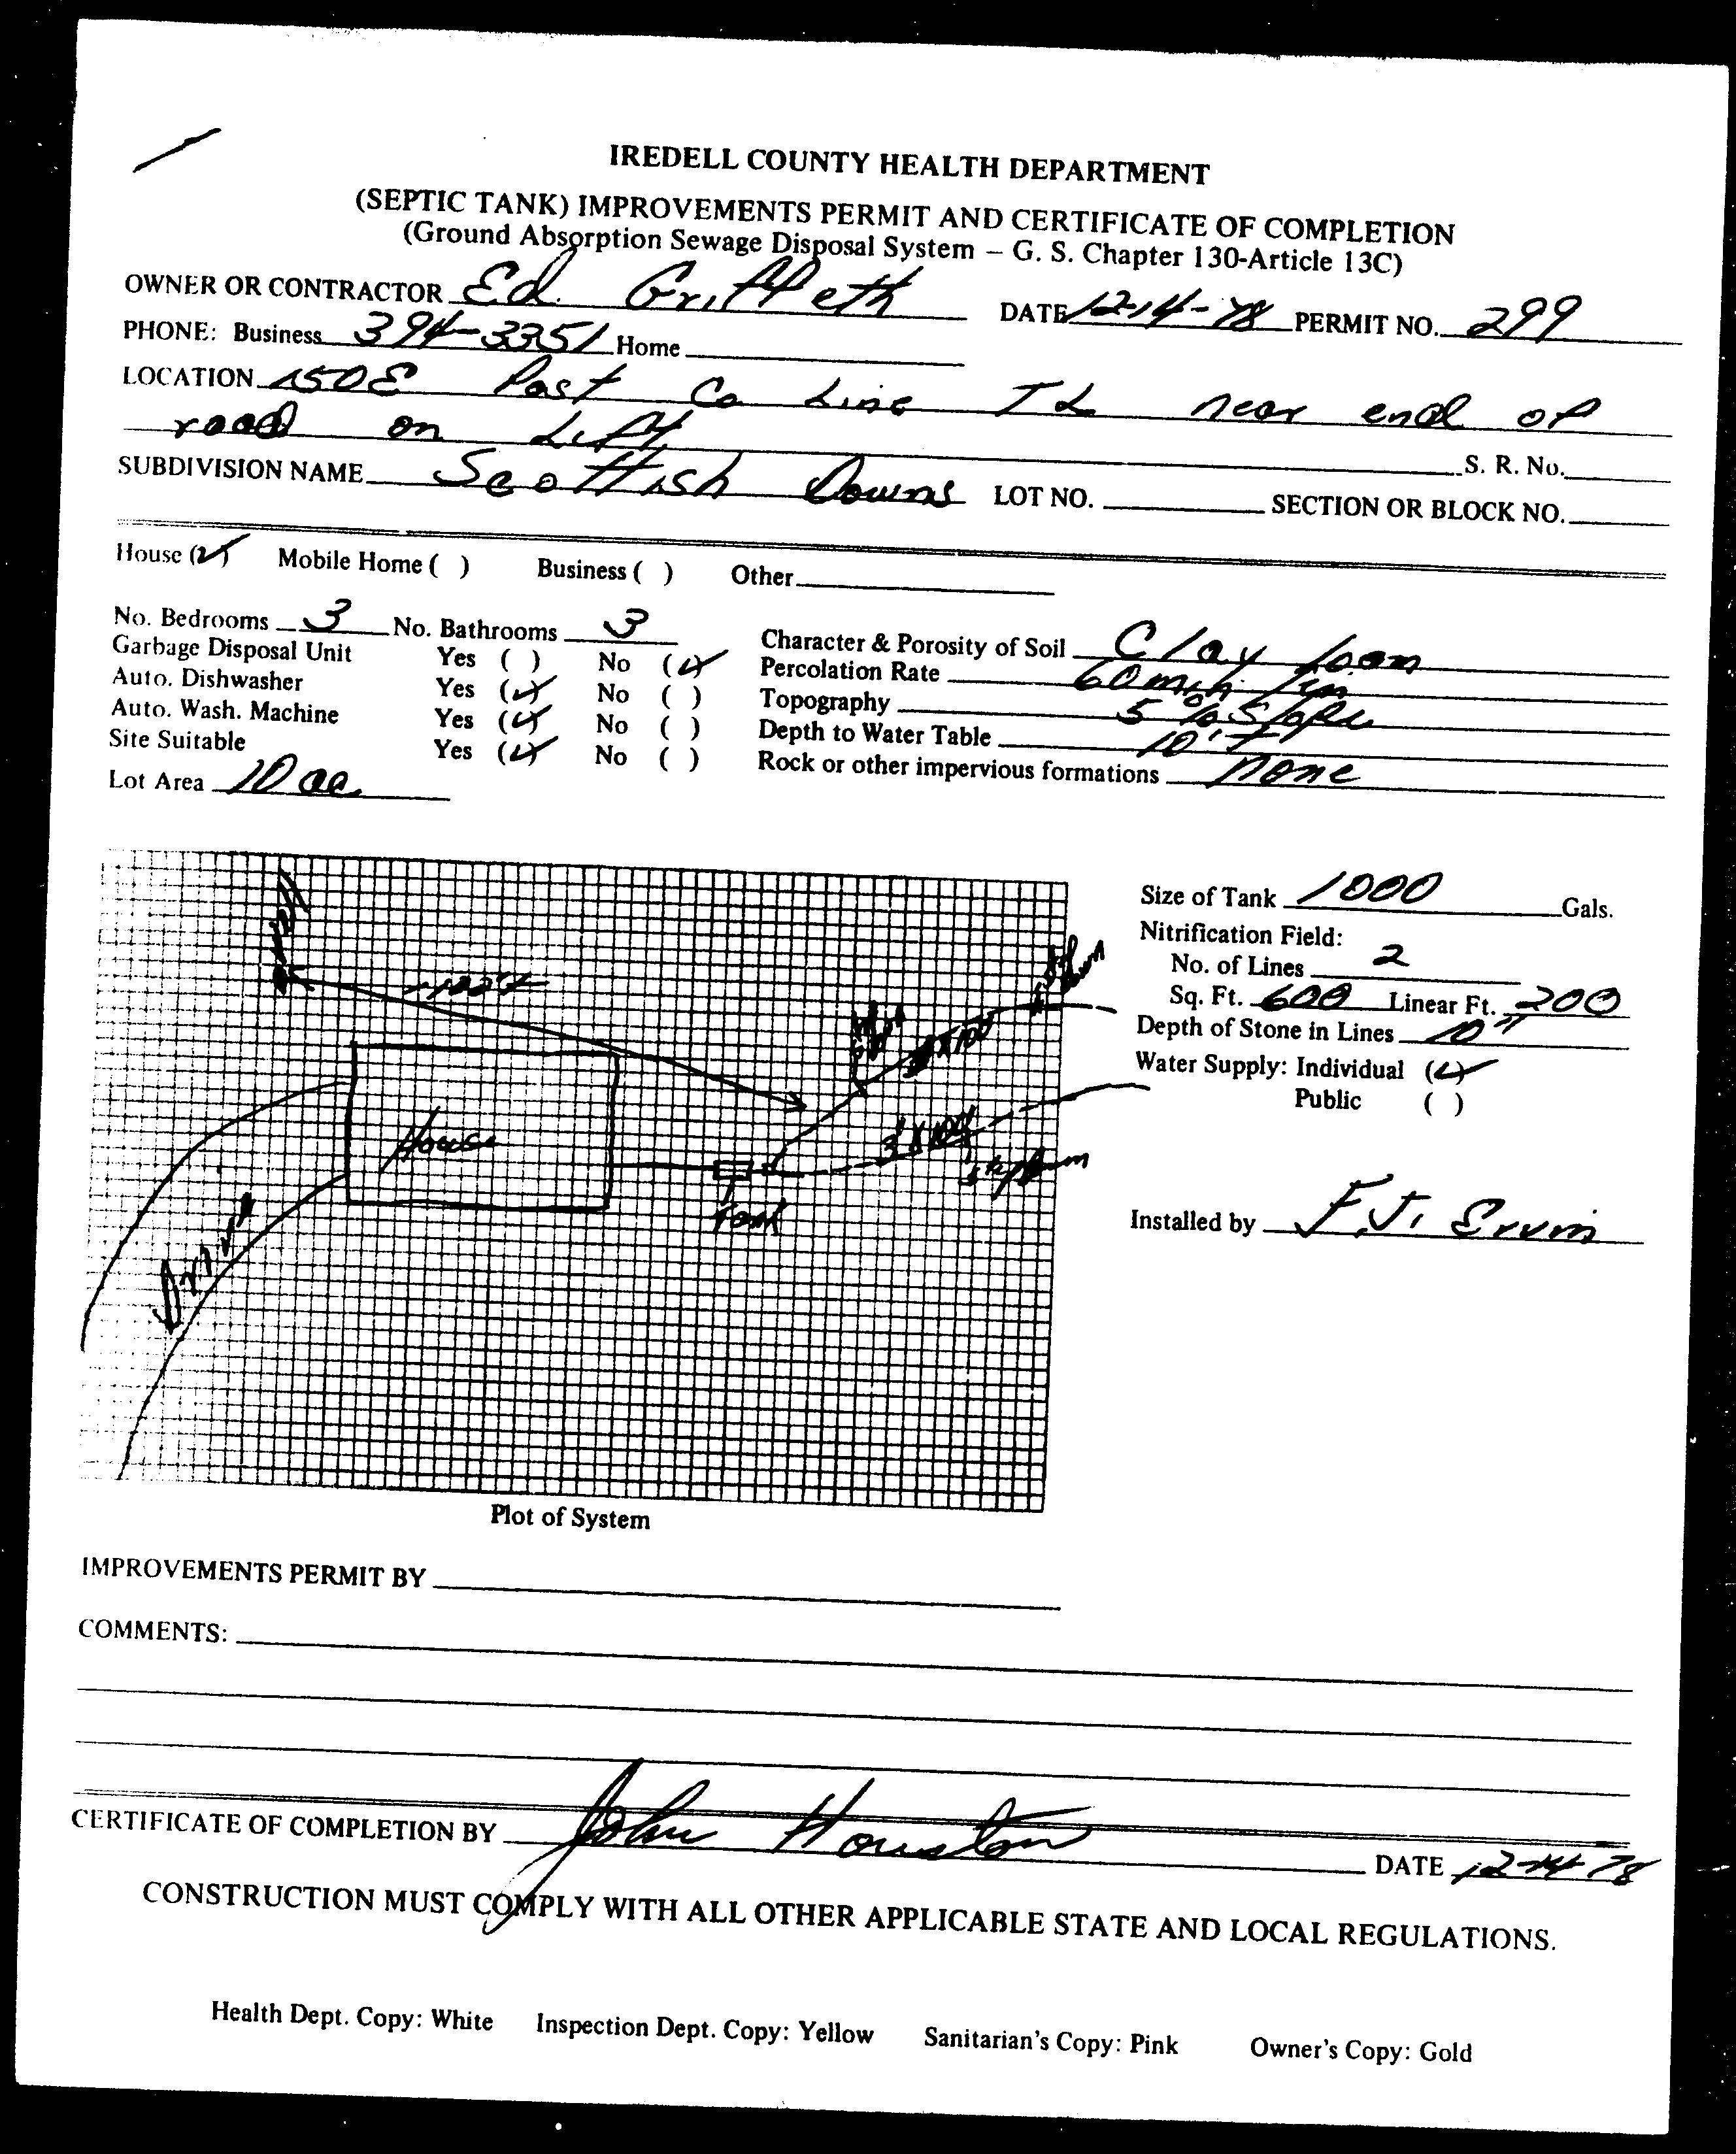 IREDELL COUNTY HEALTH DEPARTMENT
(SEPTIC TANK) IMPROVEMENTS PERMIT AND CERTIFICATE OF COMPLETION
(Ground Absorption Sewage Disposal System – G. S. Chapter 130-Article 13C)
OWNER OR CONTRACTOR Ed Griffeth DATE 12-14-78 PERMIT NO. 299
PHONE: Business 394-3351 Home
LOCATION 150E Past Co Line TL near end of
road on Lift
S. R. No.
SUBDIVISION NAME Scottish Downs LOT NO. SECTION OR BLOCK NO.
House (✓) Mobile Home ( ) Business ( ) Other
No. Bedrooms 3 No. Bathrooms 3 Character & Porosity of Soil Clay Loam
Garbage Disposal Unit Yes ( ) No (✓) Percolation Rate 60 min / in
Auto. Dishwasher Yes (✓) No ( ) Topography 5 % Slope
Auto. Wash. Machine Yes (✓) No ( ) Depth to Water Table 10'+
Site Suitable Yes (✓) No ( ) Rock or other impervious formations none
Lot Area 10 ac
Size of Tank 1000 Gals.
Nitrification Field:
No. of Lines 2
Sq. Ft. 600 Linear Ft. 200
Depth of Stone in Lines 10"
Water Supply: Individual (✓)
Public ( )
Installed by F.J. Ervin
well
100'+
3'X100'
House
3'X100'
Tank
Drive
Plot of System
IMPROVEMENTS PERMIT BY
COMMENTS:
CERTIFICATE OF COMPLETION BY John Houston
DATE 12-14-78
CONSTRUCTION MUST COMPLY WITH ALL OTHER APPLICABLE STATE AND LOCAL REGULATIONS.
Health Dept. Copy: White Inspection Dept. Copy: Yellow Sanitarian's Copy: Pink Owner's Copy: Gold